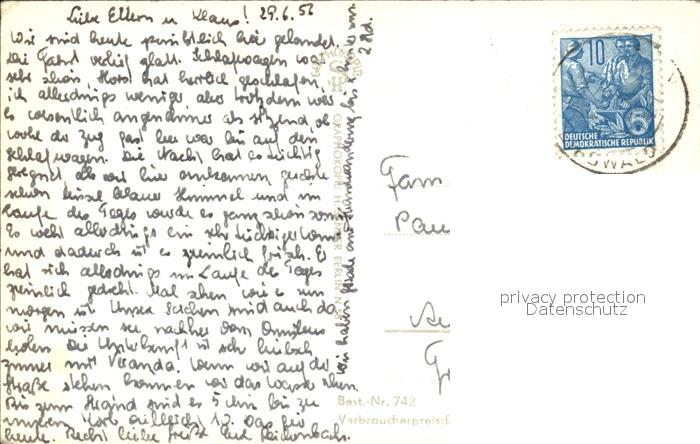 Liebe Eltern u. Klaus! 29.6.56
Wir sind heute pünktlich hier gelandet.
Die Fahrt verlief glatt. Schlafwagen war
sehr schön. Horst hat herrlich geschlafen,
ich allerdings weniger, aber trotzdem war
es wesentlich angenehmer als sitzend, ob-
wohl der Zug fast leer war bis auf den
Schlafwagen. Die Nacht hat es tüchtig
geregnet, als wir hier ankamen guckte
schon bissel blauer Himmel und im
Laufe des Tages wurde es ganz schön sonnig
Es weht allerdings ein sehr tüchtiger Wind
und dadurch ist es ziemlich frisch. Er
hat sich allerdings im Laufe des Tages
ziemlich gedreht. Mal sehen wie es nun
morgen ist. Unsere Sachen sind auch da
wir müssen sie nachher vom Omnibus
holen. Die Unterkunft ist sehr hübsch
Zimmer mit Veranda. Wenn wir auf der
Straße stehen können wir das Wasser sehen.
Bis zum Strand sind es 5 Min bis zu
unserem Korb 10. Das für
heute. Recht liebe Grüße Eure
Wir haben gerade eine
2 Rd.
GRAPHOKOPIE H. BERLIN N
Best.-Nr. 742
Verbraucherpreis:
Fam
Pau
Au
Ge
10
5
DEUTSCHE
DEMOKRATISCHE REPUBLIK
SWALD
privacy protection
Datenschutz